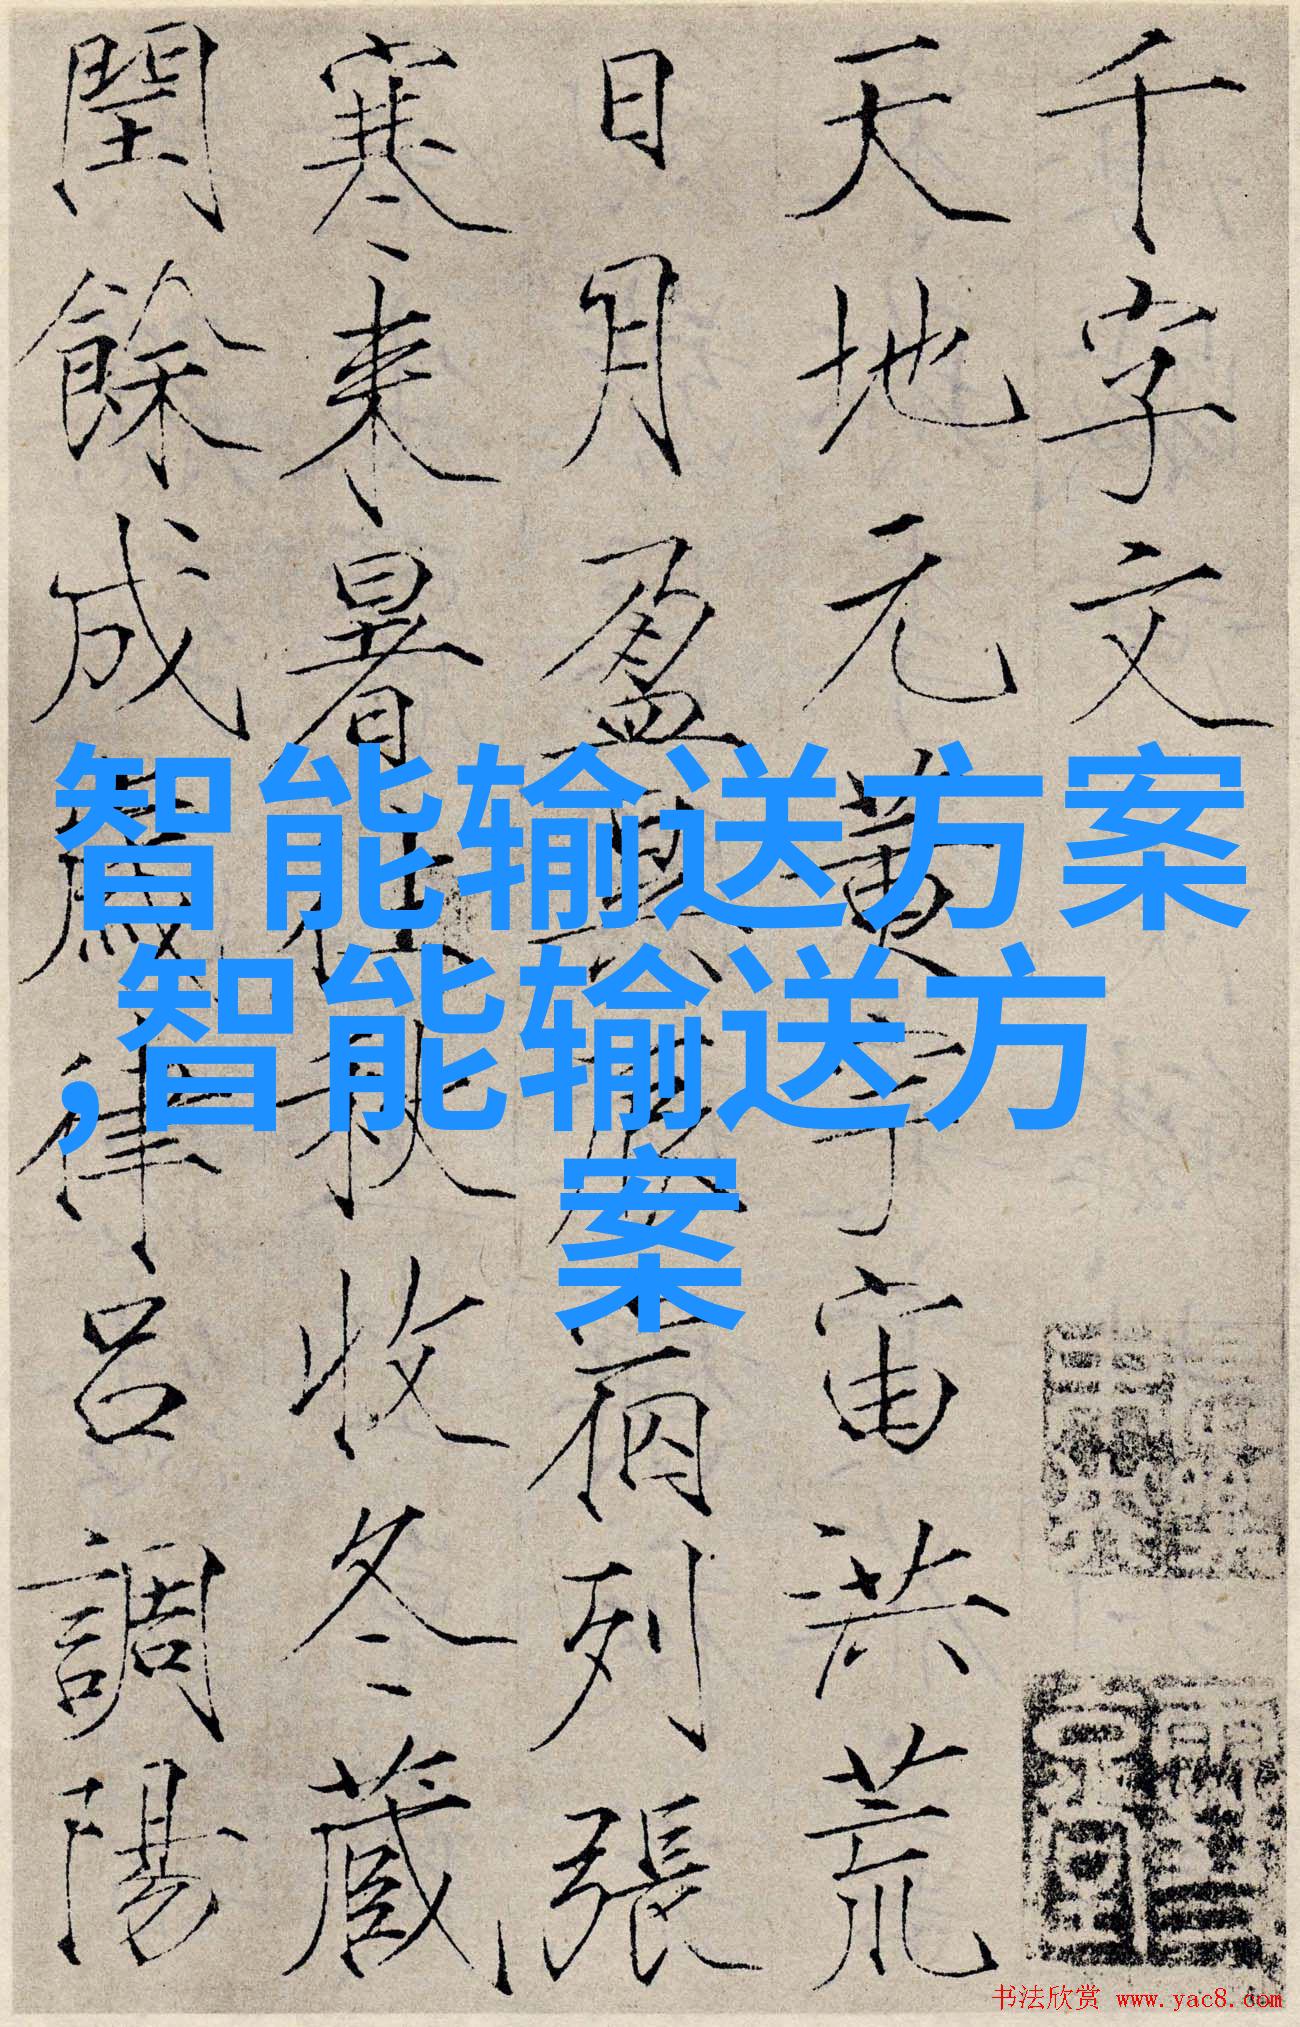 千字文
天地元黄宇宙洪荒
日月盈昃辰宿列張
寒来暑往秋收冬藏
閏餘成歲律呂調陽
智能输送方案
,智能输送方
案
书法欣赏 www.yac8.com